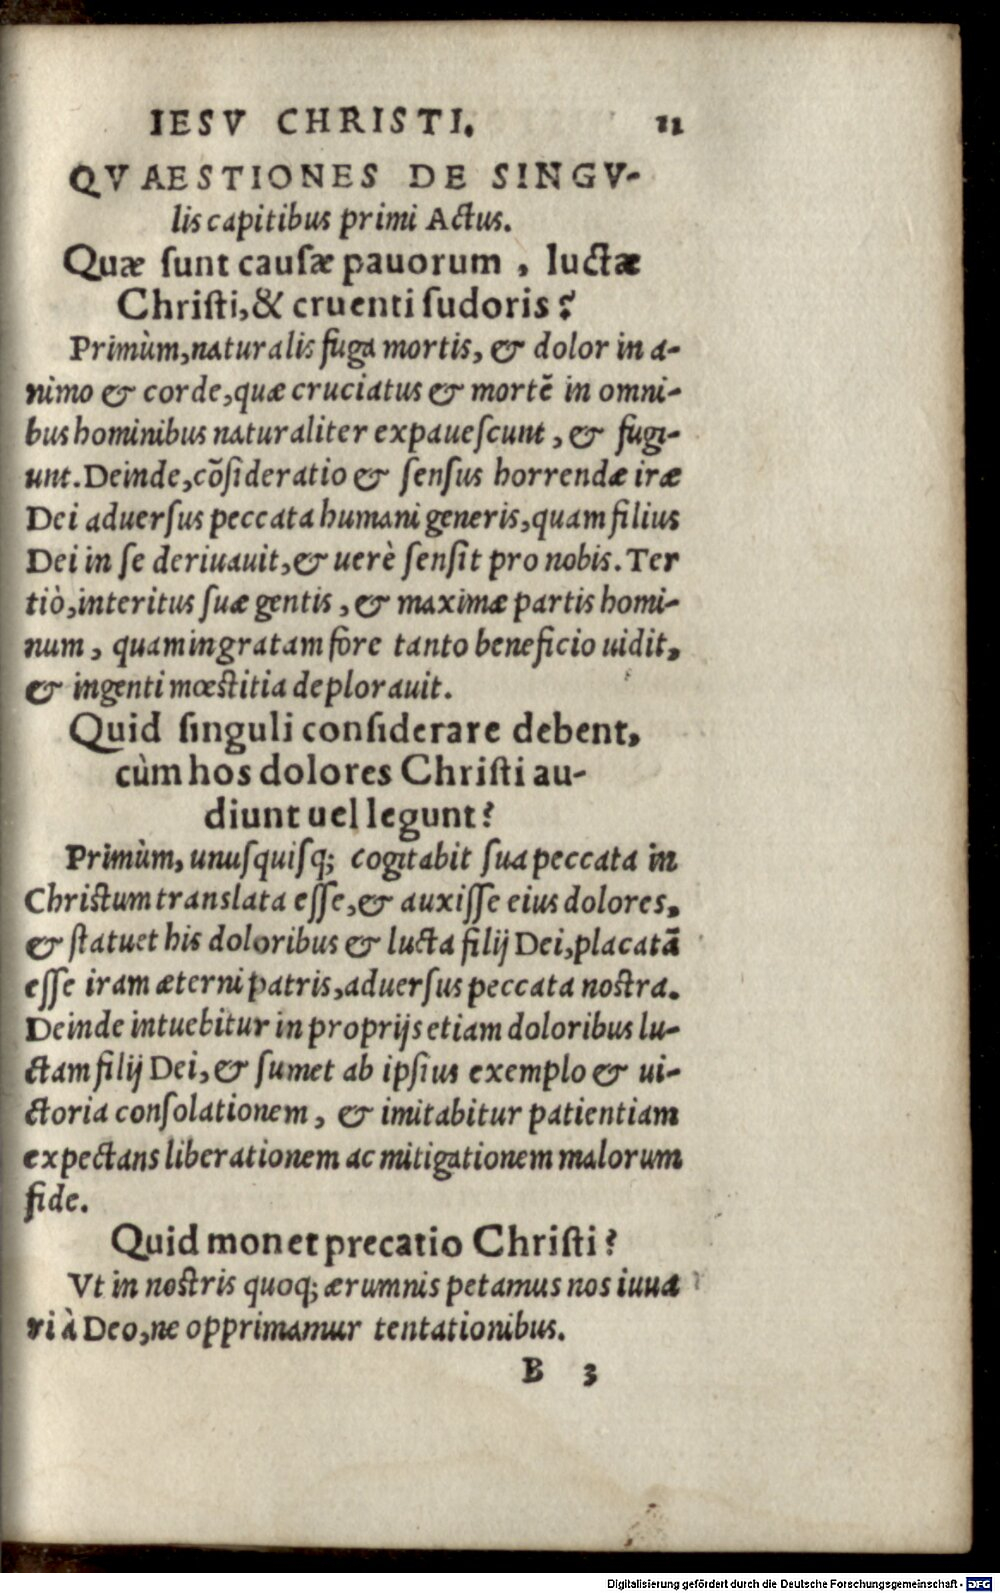 IESV CHRISTI. 11
QVAESTIONES DE SINGV-
lis capitibus primi Actus.
Quæ sunt causæ pauorum, luctæ
Christi, & cruenti sudoris?
Primùm, naturalis fuga mortis, & dolor in a-
nimo & corde, quæ cruciatus & mortē in omni-
bus hominibus naturaliter expauescunt, & fugi-
unt. Deinde, cōsideratio & sensus horrendæ iræ
Dei aduersus peccata humani generis, quam filius
Dei in se deriuauit, & uerè sensit pro nobis. Ter
tiò, interitus suæ gentis, & maximæ partis homi-
num, quam ingratam fore tanto beneficio uidit,
& ingenti mœstitia deplorauit.
Quid singuli considerare debent,
cùm hos dolores Christi au-
diunt uel legunt?
Primùm, unusquisq; cogitabit sua peccata in
Christum translata esse, & auxisse eius dolores,
& statuet his doloribus & lucta filij Dei, placatā
esse iram æterni patris, aduersus peccata nostra.
Deinde intuebitur in proprijs etiam doloribus lu-
ctam filij Dei, & sumet ab ipsius exemplo & ui-
ctoria consolationem, & imitabitur patientiam
expectans liberationem ac mitigationem malorum
fide.
Quid monet precatio Christi?
Vt in nostris quoq; ærumnis petamus nos iuua
ri à Deo, ne opprimamur tentationibus.
B 3
Digitalisierung gefördert durch die Deutsche Forschungsgemeinschaft - DFG